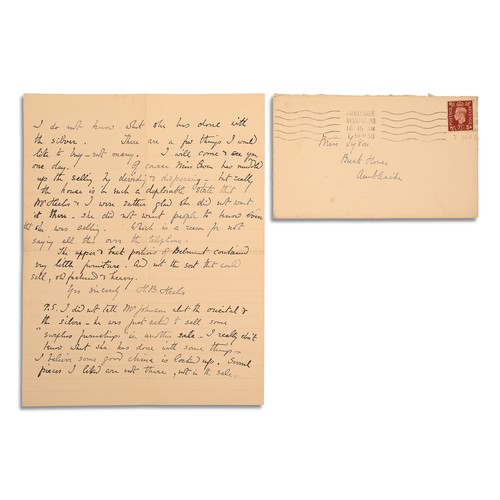 I do not know what she has done with
the silver. There are a few things I would
like to buy - not many. I will come & see you
one day. Of course Miss Owen has muddled
up the selling by dividing & dispersing - but really
the house is in such a deplorable state that
Mr Heelis & I were rather glad she did not want
it there - she did not want people to know even
tht she was selling. Which is a reason for not
saying all this over the telephone.
The upper & back portions of Belmount contained
very little furniture. And not the sort that could
sell, old fashioned & heavy.
Yrs sincerely H.B. Heelis
P.S. I did not tell Mr Johnson abt the oriental &
the silver - he was just asked to sell some
"surplus furnishings" in another sale - I really don't
know what she has done with some things -
I believe some good china is locked up. Several
pieces I liked are not there, not in the sale.
AMBLESIDE
WESTMORLAND
10 15 AM
SEP 38
Miss Hyson
Bank House
Ambleside